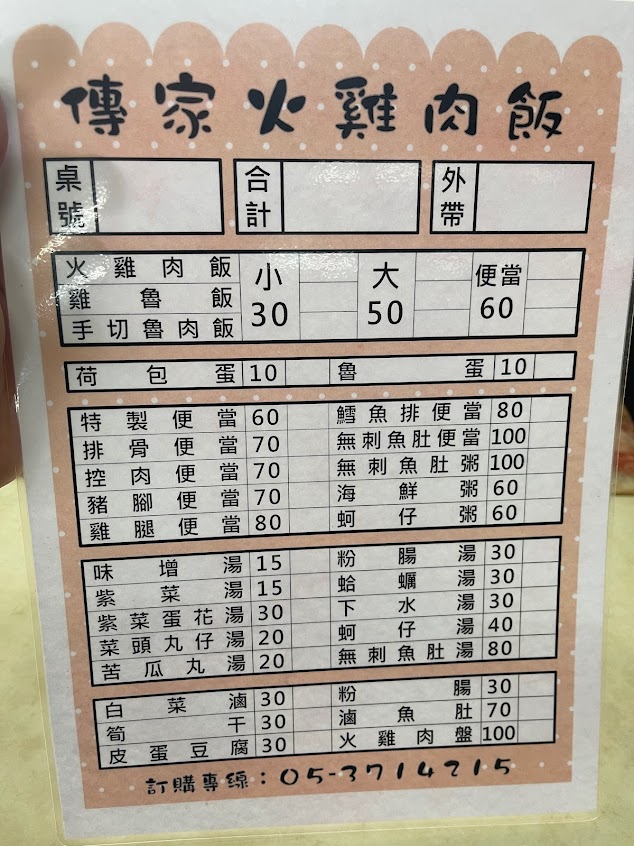 傳家火雞肉飯
桌號 合計 外帶
火雞肉飯 小 大 便當
雞魯飯 30 50 60
手切魯肉飯
荷包蛋 10 魯蛋 10
特製便當 60 鱈魚排便當 80
排骨便當 70 無刺魚肚便當 100
控肉便當 70 無刺魚肚粥 100
豬腳便當 70 海鮮粥 60
雞腿便當 80 蚵仔粥 60
味增湯 15 粉腸湯 30
紫菜湯 15 蛤蠣湯 30
紫菜蛋花湯 30 下水湯 30
菜頭丸仔湯 20 蚵仔湯 40
苦瓜丸湯 20 無刺魚肚湯 80
白菜滷 30 粉腸 30
筍干 30 滷魚肚 70
皮蛋豆腐 30 火雞肉盤 100
訂購專線：05-3714215